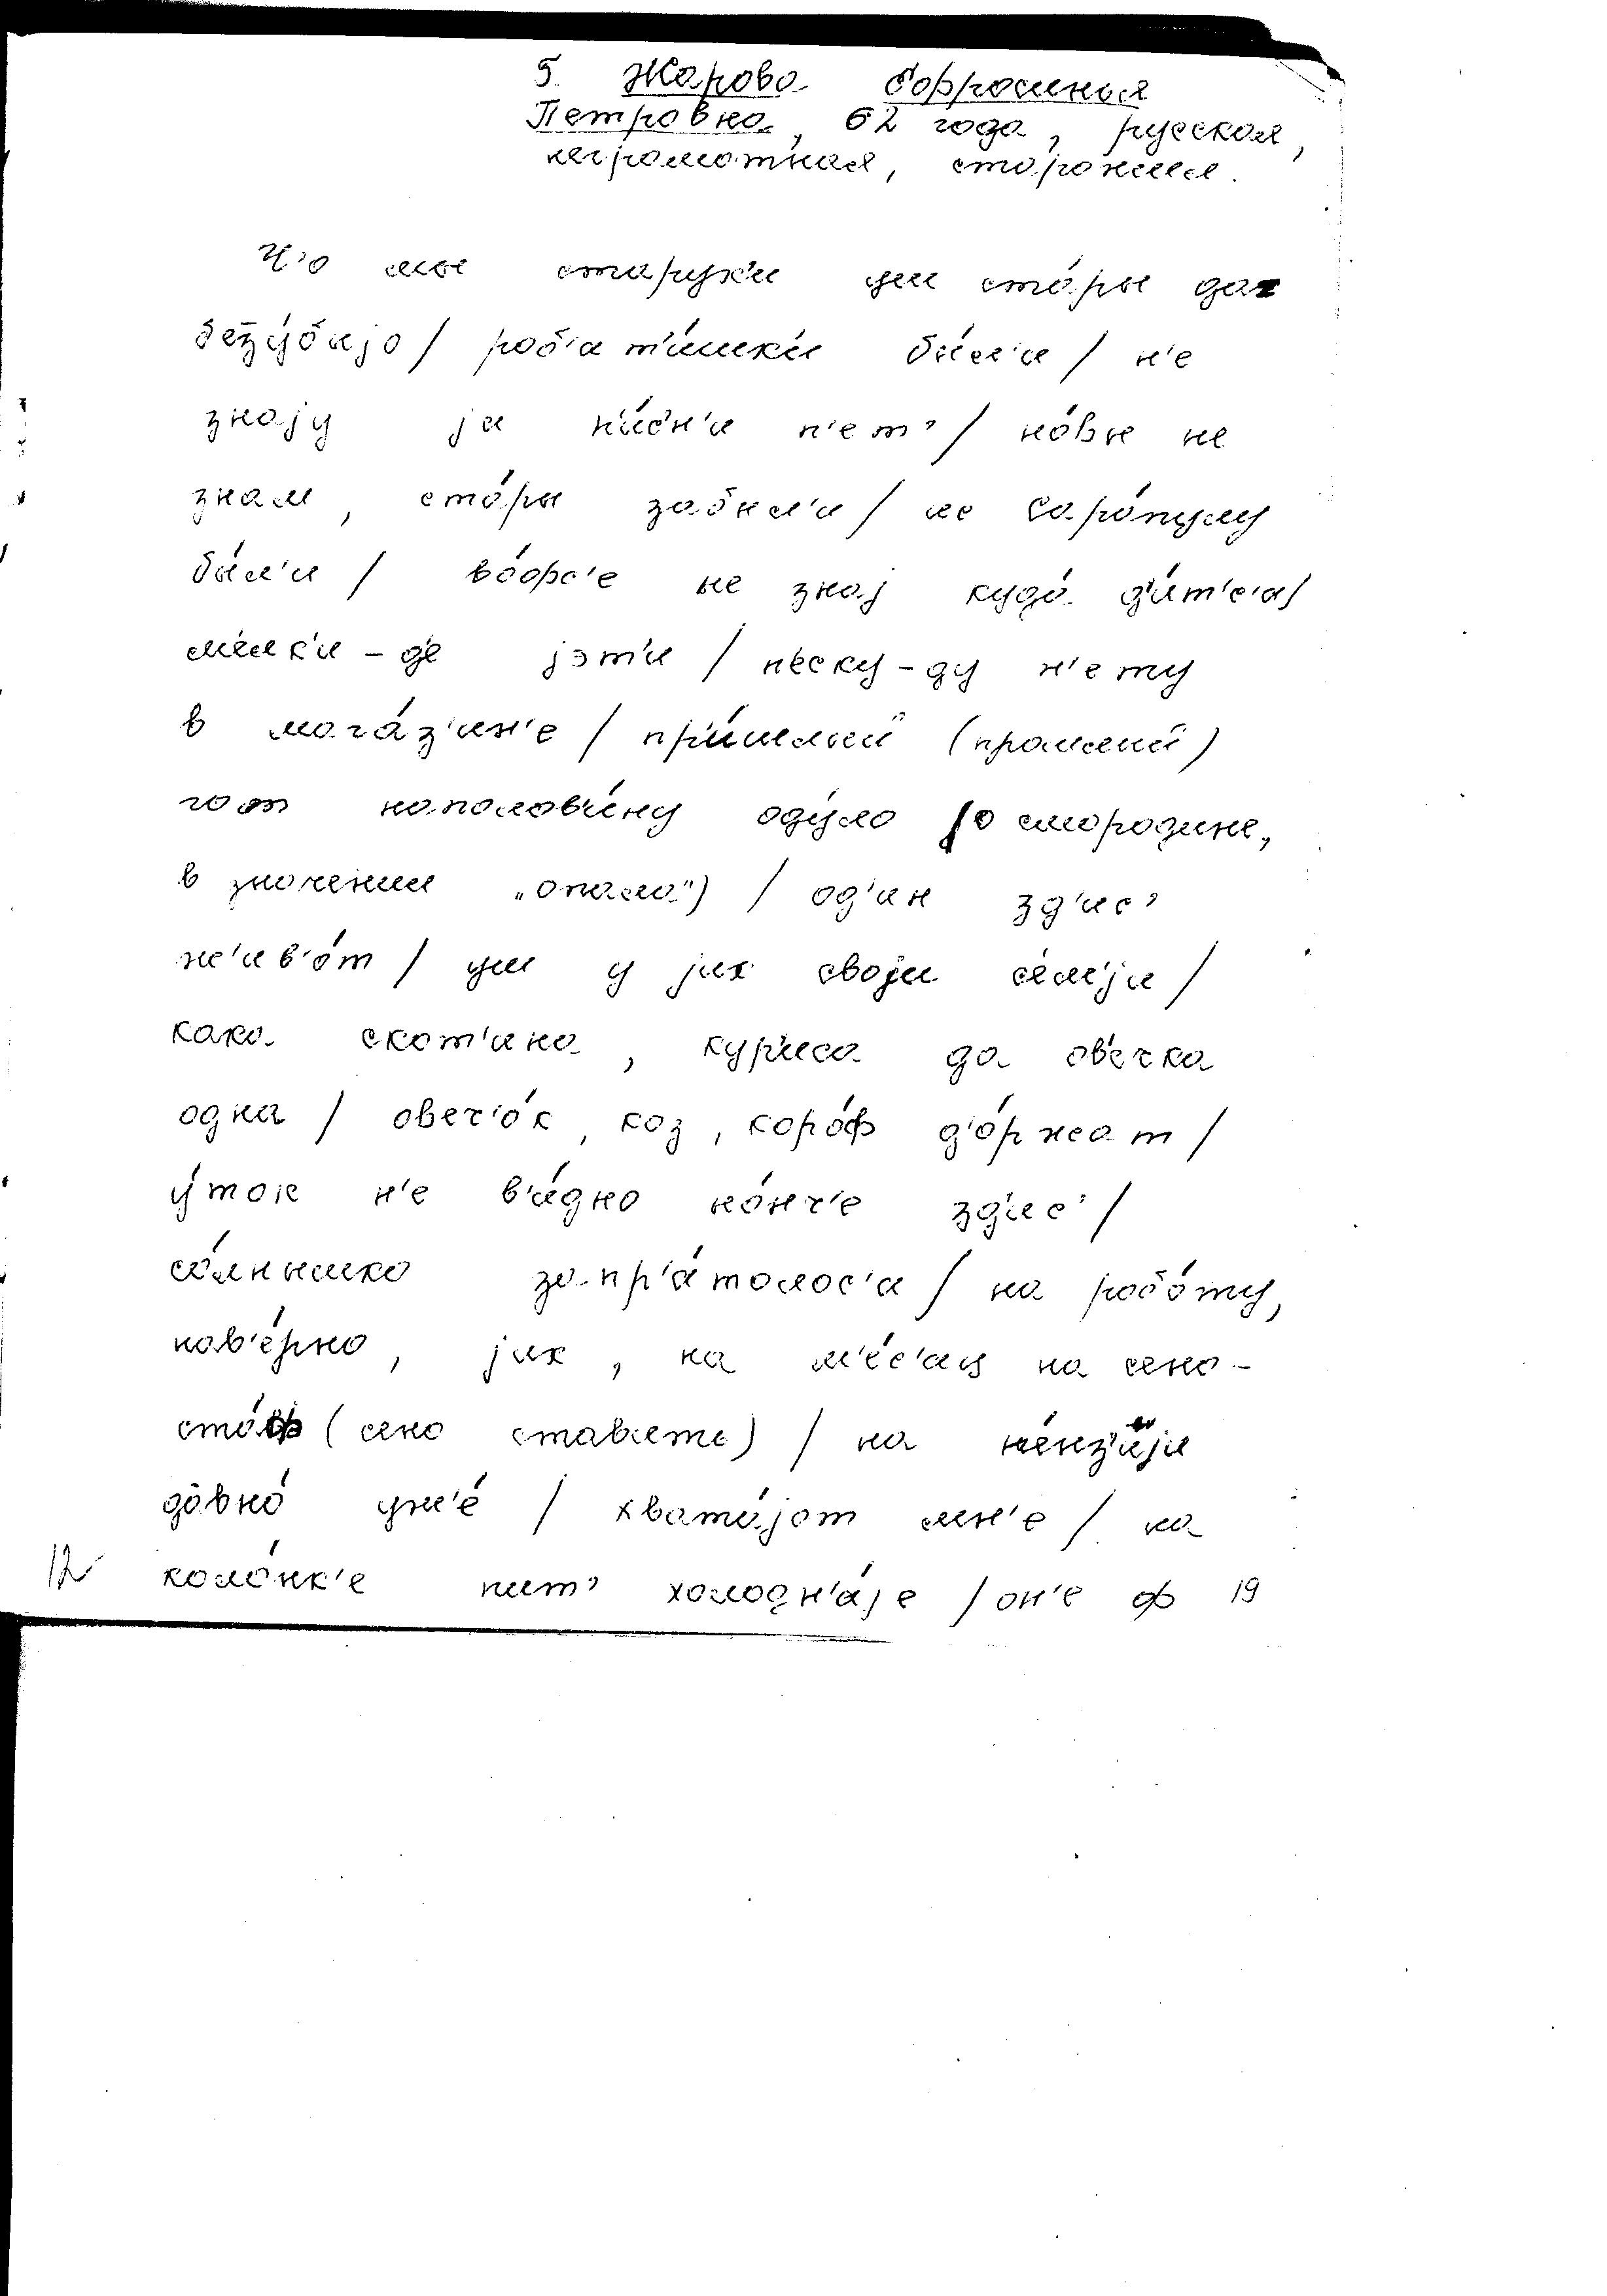 5. Жарова Ефросинья
Петровна, 62 года, русская,
неграмотная, сторожила.
Ч'о мы старук'и уш ста́ры да
безу́быjо / роб'ат'и́шк'и бы́л'и / н'е
знаjу jа п'и́с'н'и п'ет' / но́вы не
знам, ста́ры забыл'и / ис Сара́пулу
бы́л'и / во́опс'е не знаj куда́ д'и́т'с'а /
м'ишк'и-д'е jэт'и / п'еску-ду н'ету
в мага́з'ин'е / пр'и́шлый (прошлый)
гот наполов'и́ну оду́ло /о смородине,
в значении „опала") / од'ин зд'ис'
жив'о́т / уш у jих своjи с'ем'jи /
кака скот'ина, кур'иса да ов'ечка
одна / овеч'о́к, коз, коро́ф д'о́ржат /
у́ток н'е в'и́дно но́нч'е зд'ис' /
со́лнышко запр'а́толос'а / на робо́ту,
нав'е́рно, jих, на м'е́с'ац на сено-
ста́ф (сено ставить) / на п'е́нз'иjи
давно́ уж'е́ / хвата́jот мн'е / на
коло́нк'е пит' холодн'а́jе / он'е ф 19
12